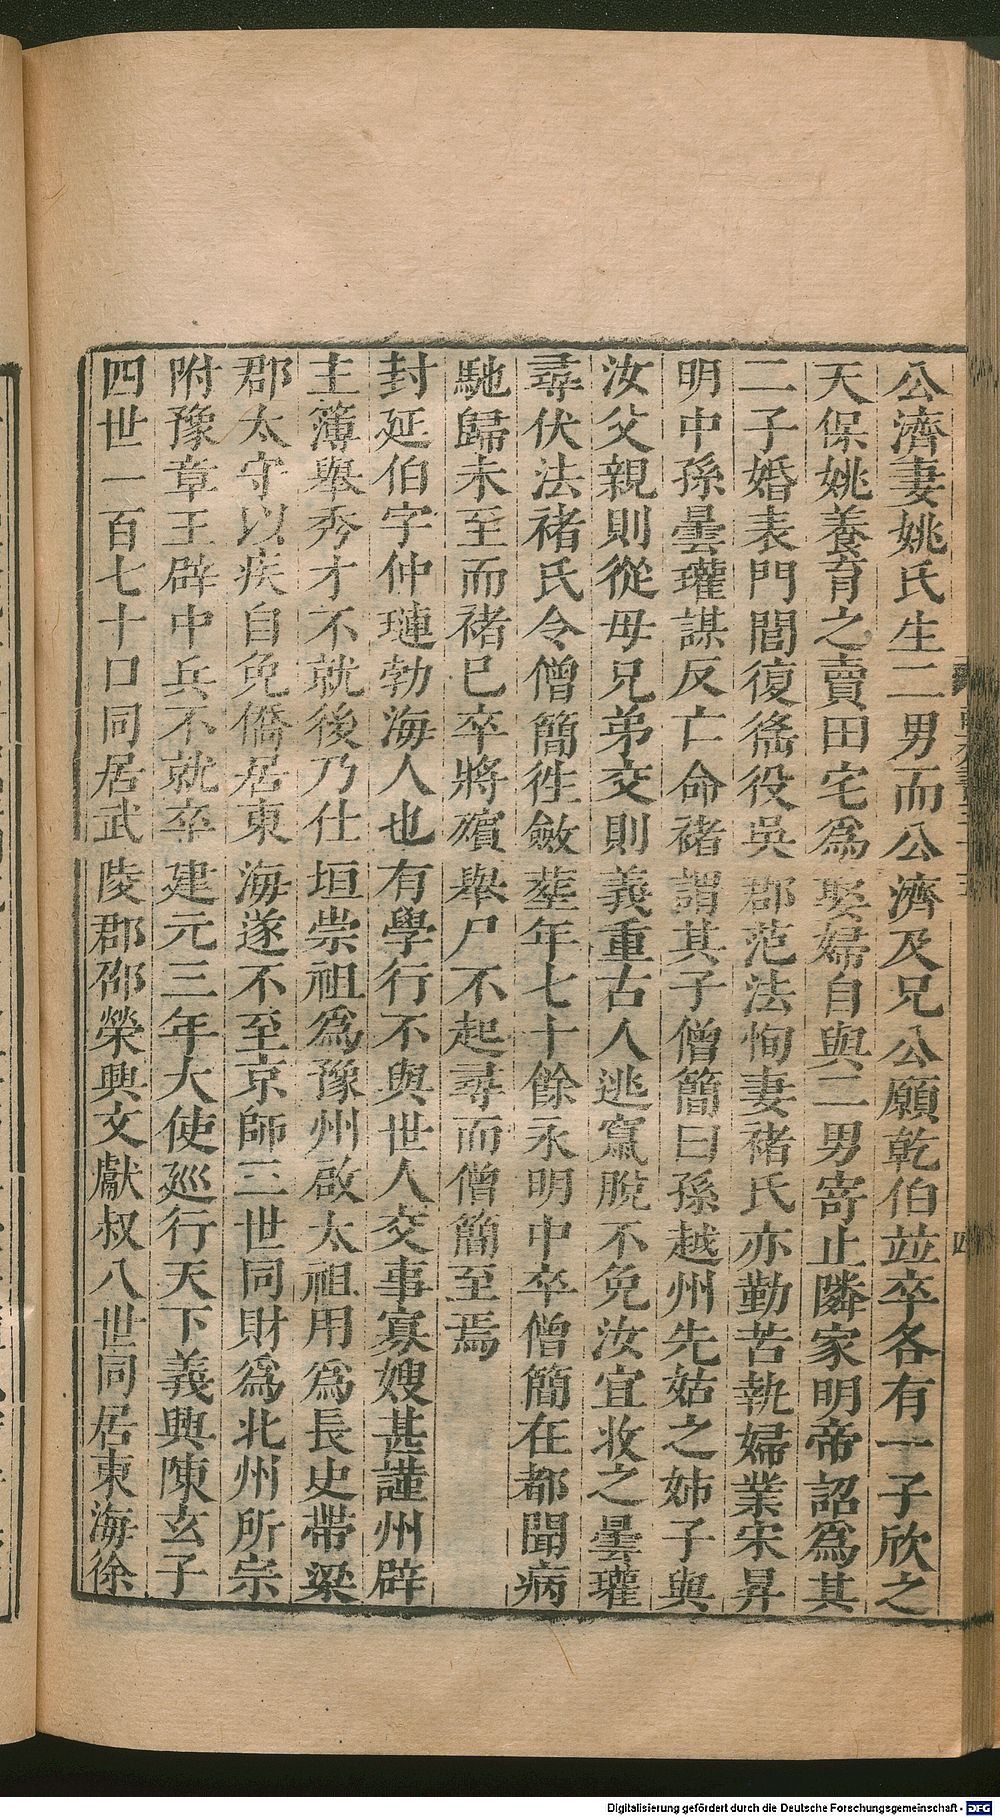 公濟妻姚氏生二男而公濟及兄公願乾伯並卒各有一子欣之
天保姚養育之賣田宅為娶婦自與二男寄止隣家明帝詔為其
二子婚表門閭復徭役吳郡范法恂妻褚氏亦勤苦執婦業宋昇
明中孫曇瓘謀反亡命褚謂其子僧簡曰孫越州先姑之姊子與
汝父親則從母兄弟交則義重古人逃竄脫不免汝宜收之曇瓘
尋伏法褚氏令僧簡徃斂葬年七十餘永明中卒僧簡在都聞病
馳歸未至而褚巳卒將殯舉尸不起尋而僧簡至焉
封延伯字仲璉勃海人也有學行不與世人交事寡嫂甚謹州辟
主簿舉秀才不就後乃仕垣崇祖為豫州啟太祖用為長史帶梁
郡太守以疾自免僑居東海遂不至京師三世同財為北州所宗
附豫章王辟中兵不就卒建元三年大使巡行天下義興陳玄子
四世一百七十口同居武陵郡邵榮興文獻叔八世同居東海徐
四
Digitalisierung gefördert durch die Deutsche Forschungsgemeinschaft - DFG